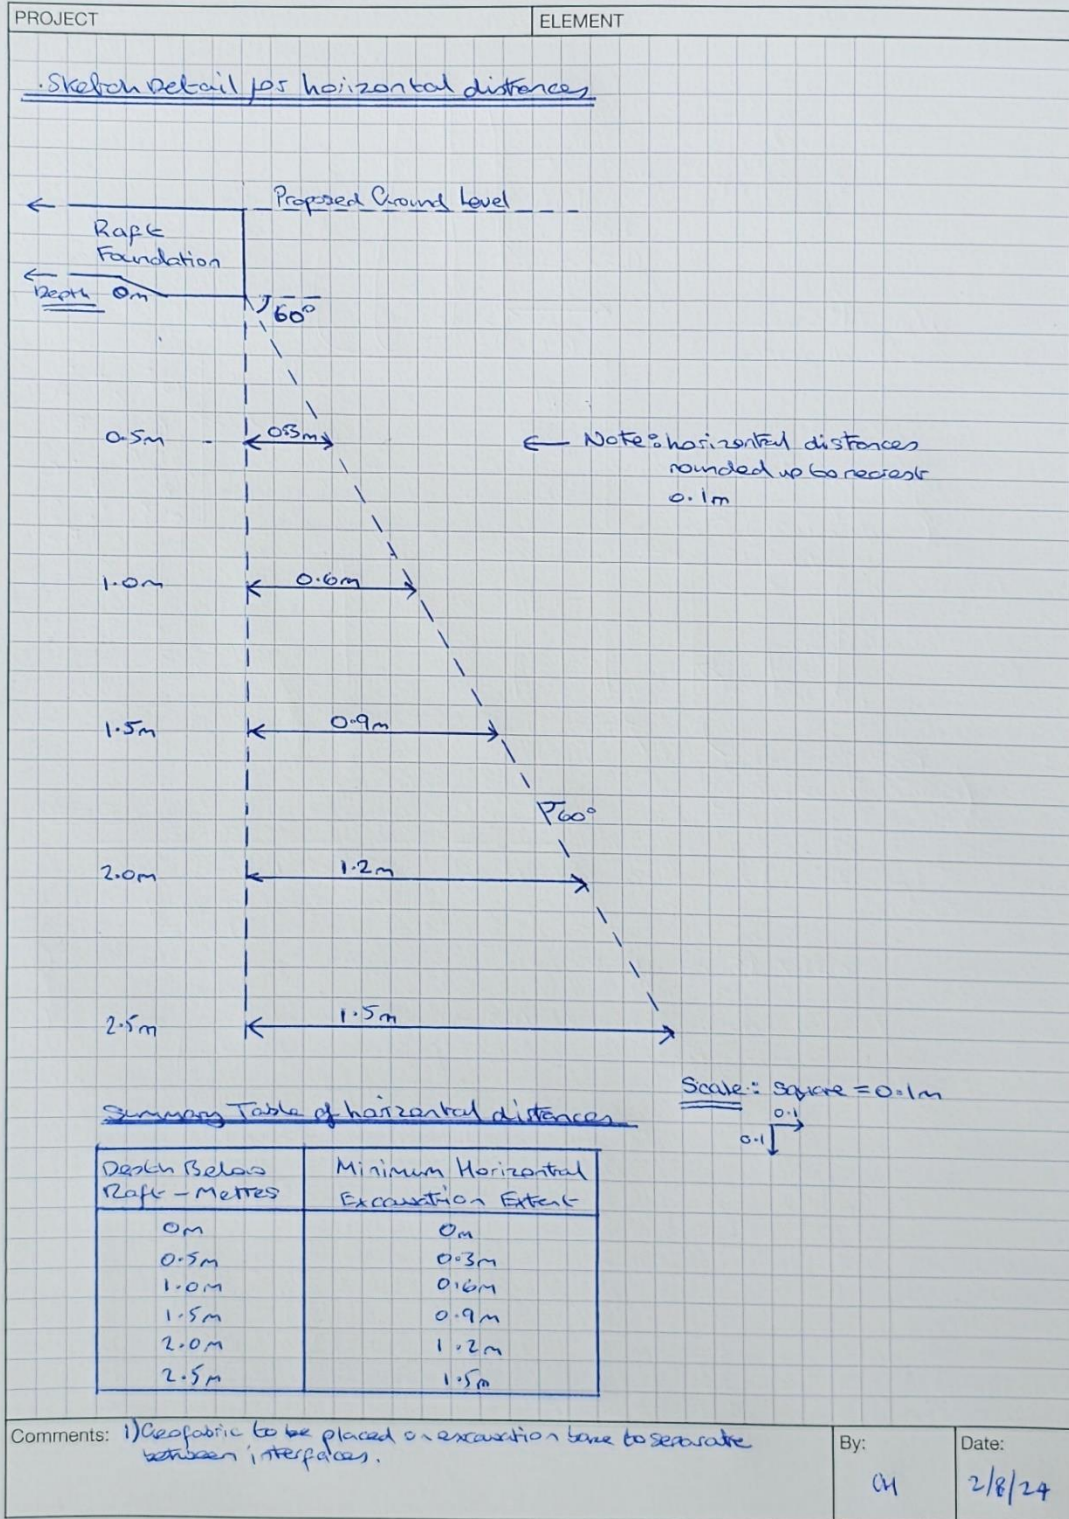 PROJECT
ELEMENT
Sketch Detail for horizontal distances
Proposed Ground Level
Raft
Foundation
Depth 0m
60°
0.5m
0.3m
← Note: horizontal distances
rounded up to nearest
0.1m
1.0m
0.6m
1.5m
0.9m
60°
2.0m
1.2m
2.5m
1.5m
Scale: Square = 0.1m
0.1
0.1
Summary Table of horizontal distances
Depth Below Minimum Horizontal
Raft - Metres Excavation Extent
0m 0m
0.5m 0.3m
1.0m 0.6m
1.5m 0.9m
2.0m 1.2m
2.5m 1.5m
Comments: 1) Geofabric to be placed on excavation base to separate
between interfaces.
By:
CH
Date:
2/8/24